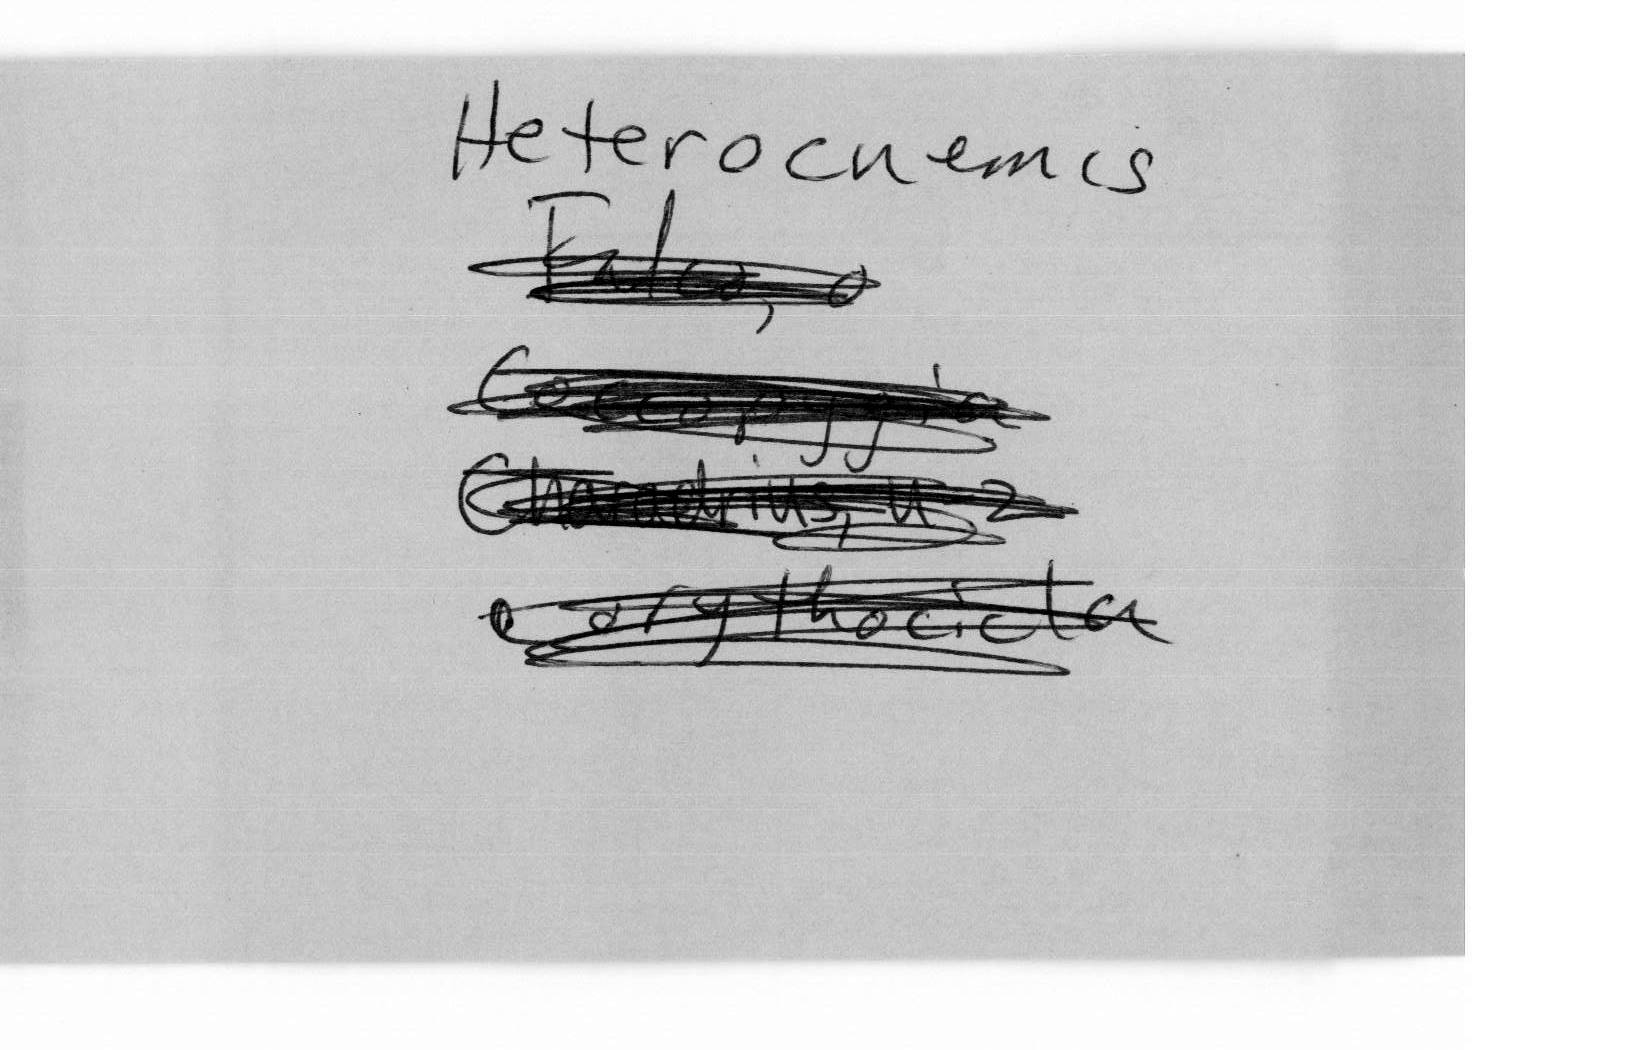 Heterocnemis
Falco,
Coccopygia
Charadrius, n 2